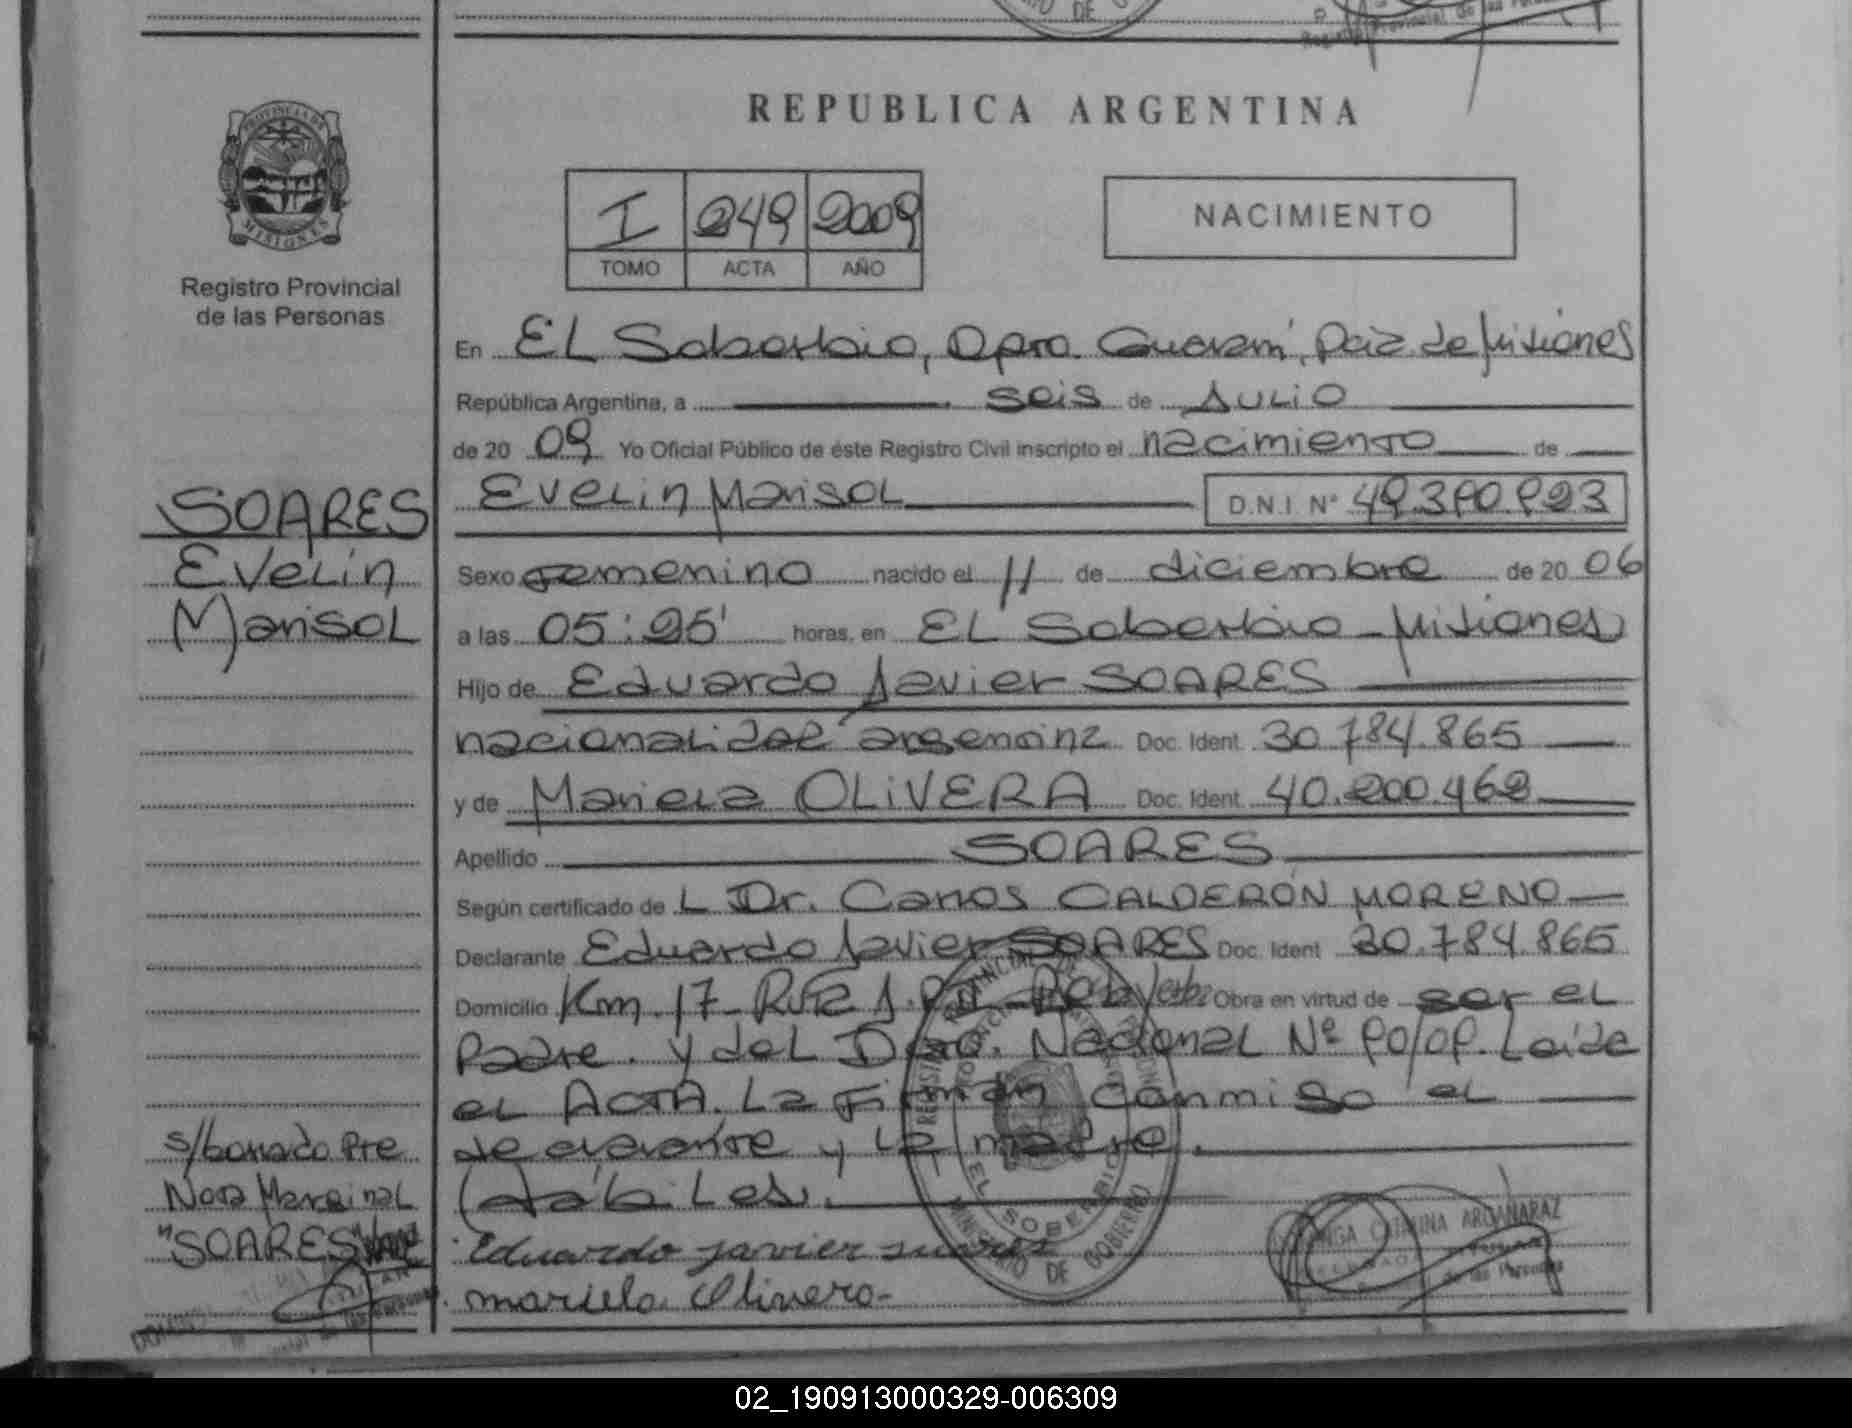 REPUBLICA ARGENTINA
PROVINCIA DE
MISIONES
Registro Provincial
de las Personas
I 249 2009
TOMO ACTA AÑO
NACIMIENTO
En EL Soberbio, Dpto. Guaraní, Pcia. de Misiones
República Argentina, a seis de JULIO
de 20 09 Yo Oficial Público de éste Registro Civil inscripto el nacimiento de
Evelin Marisol D.N.I. Nº
SOARES
Evelin
Marisol
Sexo Femenino nacido el 11 de diciembre de 20 06
a las 05:25' horas, en EL Soberbio - Misiones
Hijo de Eduardo Javier SOARES
nacionalidad argentina Doc. Ident. 30.784.865
y de Mariela OLIVERA Doc. Ident. 40.200.462
Apellido SOARES
Según certificado de L Dr. Carlos CALDERÓN MORENO
Declarante Eduardo Javier SOARES Doc. Ident 30.784.865
Domicilio Km. 17 - Ruta Obra en virtud de ser el
Padre. y del Dcto. Nacional Nº 90/09. Leída
el ACTA. La Firman conmigo el
declarante y la madre.
(Hábiles).
s/borrado Pte
Nota Marginal
"SOARES" Vale
Eduardo javier suares
mariela Olivera-
EL SOBERBIO
MINISTERIO DE GOBIERNO
CATALINA ARGAÑARAZ
02_190913000329-006309